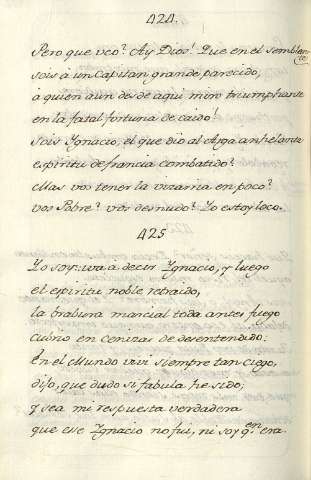 424.
Pero que veo? Ay Dios! Que en el semblante
sois à un Capitan grande parecido,
à quien aun desde aqui miro triumphante
en la fatal fortuna de caido!
Sois Ygnacio, el que dio al Arga anhelante
espiritu de francia combatido?
Mas vos tener la vizarria en poco?
vos Pobre? vos desnudo? Yo estoy loco.
425
Yo soy: iva à decir Ygnacio, y luego
el espiritu noble retraido,
la brabura marcial toda antes fuego
cubrio en cenizas de desentendido:
En el Mundo vivi siempre tan ciego,
dijo, que dudo si fabula he sido;
Y sea mi respuesta verdadera
que ese Ygnacio no fui, ni soy qn. era.